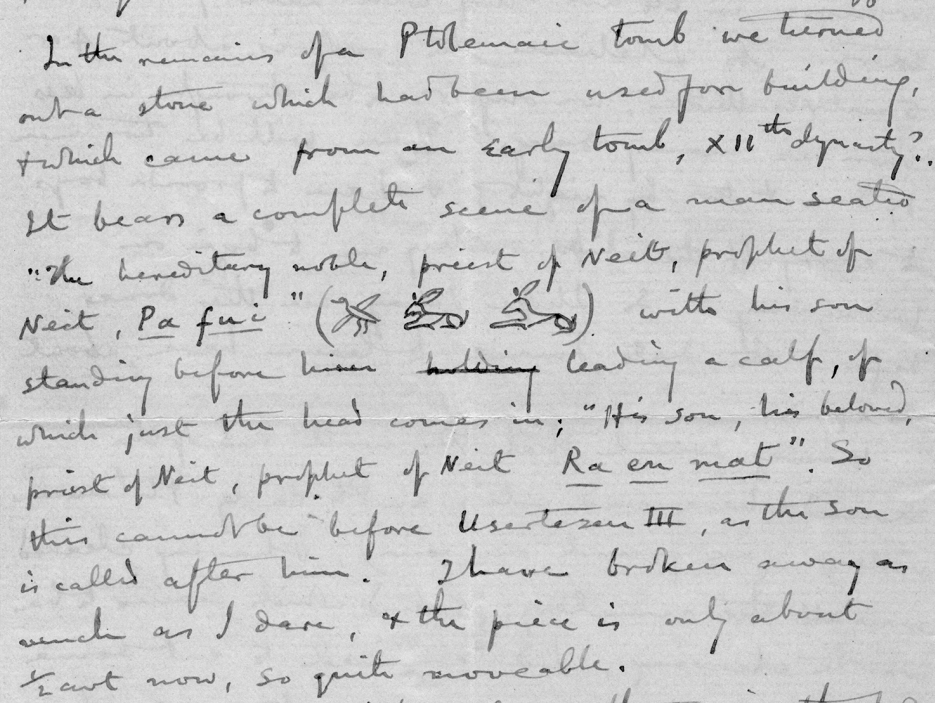 In the remains of a Ptolemaic tomb we turned
out a stone which had been used for building,
& which came from an early tomb, XIIth dynasty?.
It bears a complete scene of a man seated
"The hereditary noble, priest of Neit, prophet of
Neit, Pa fui" ( ) with his son
standing before him holding leading a calf, of
which just the head comes in; "His son, his beloved,
priest of Neit, prophet of Neit Ra en mat". So
this cannot be before Usertesen III, as the son
is called after him. I have broken away as
much as I dare, & the piece is only about
½ cwt now, so quite moveable.